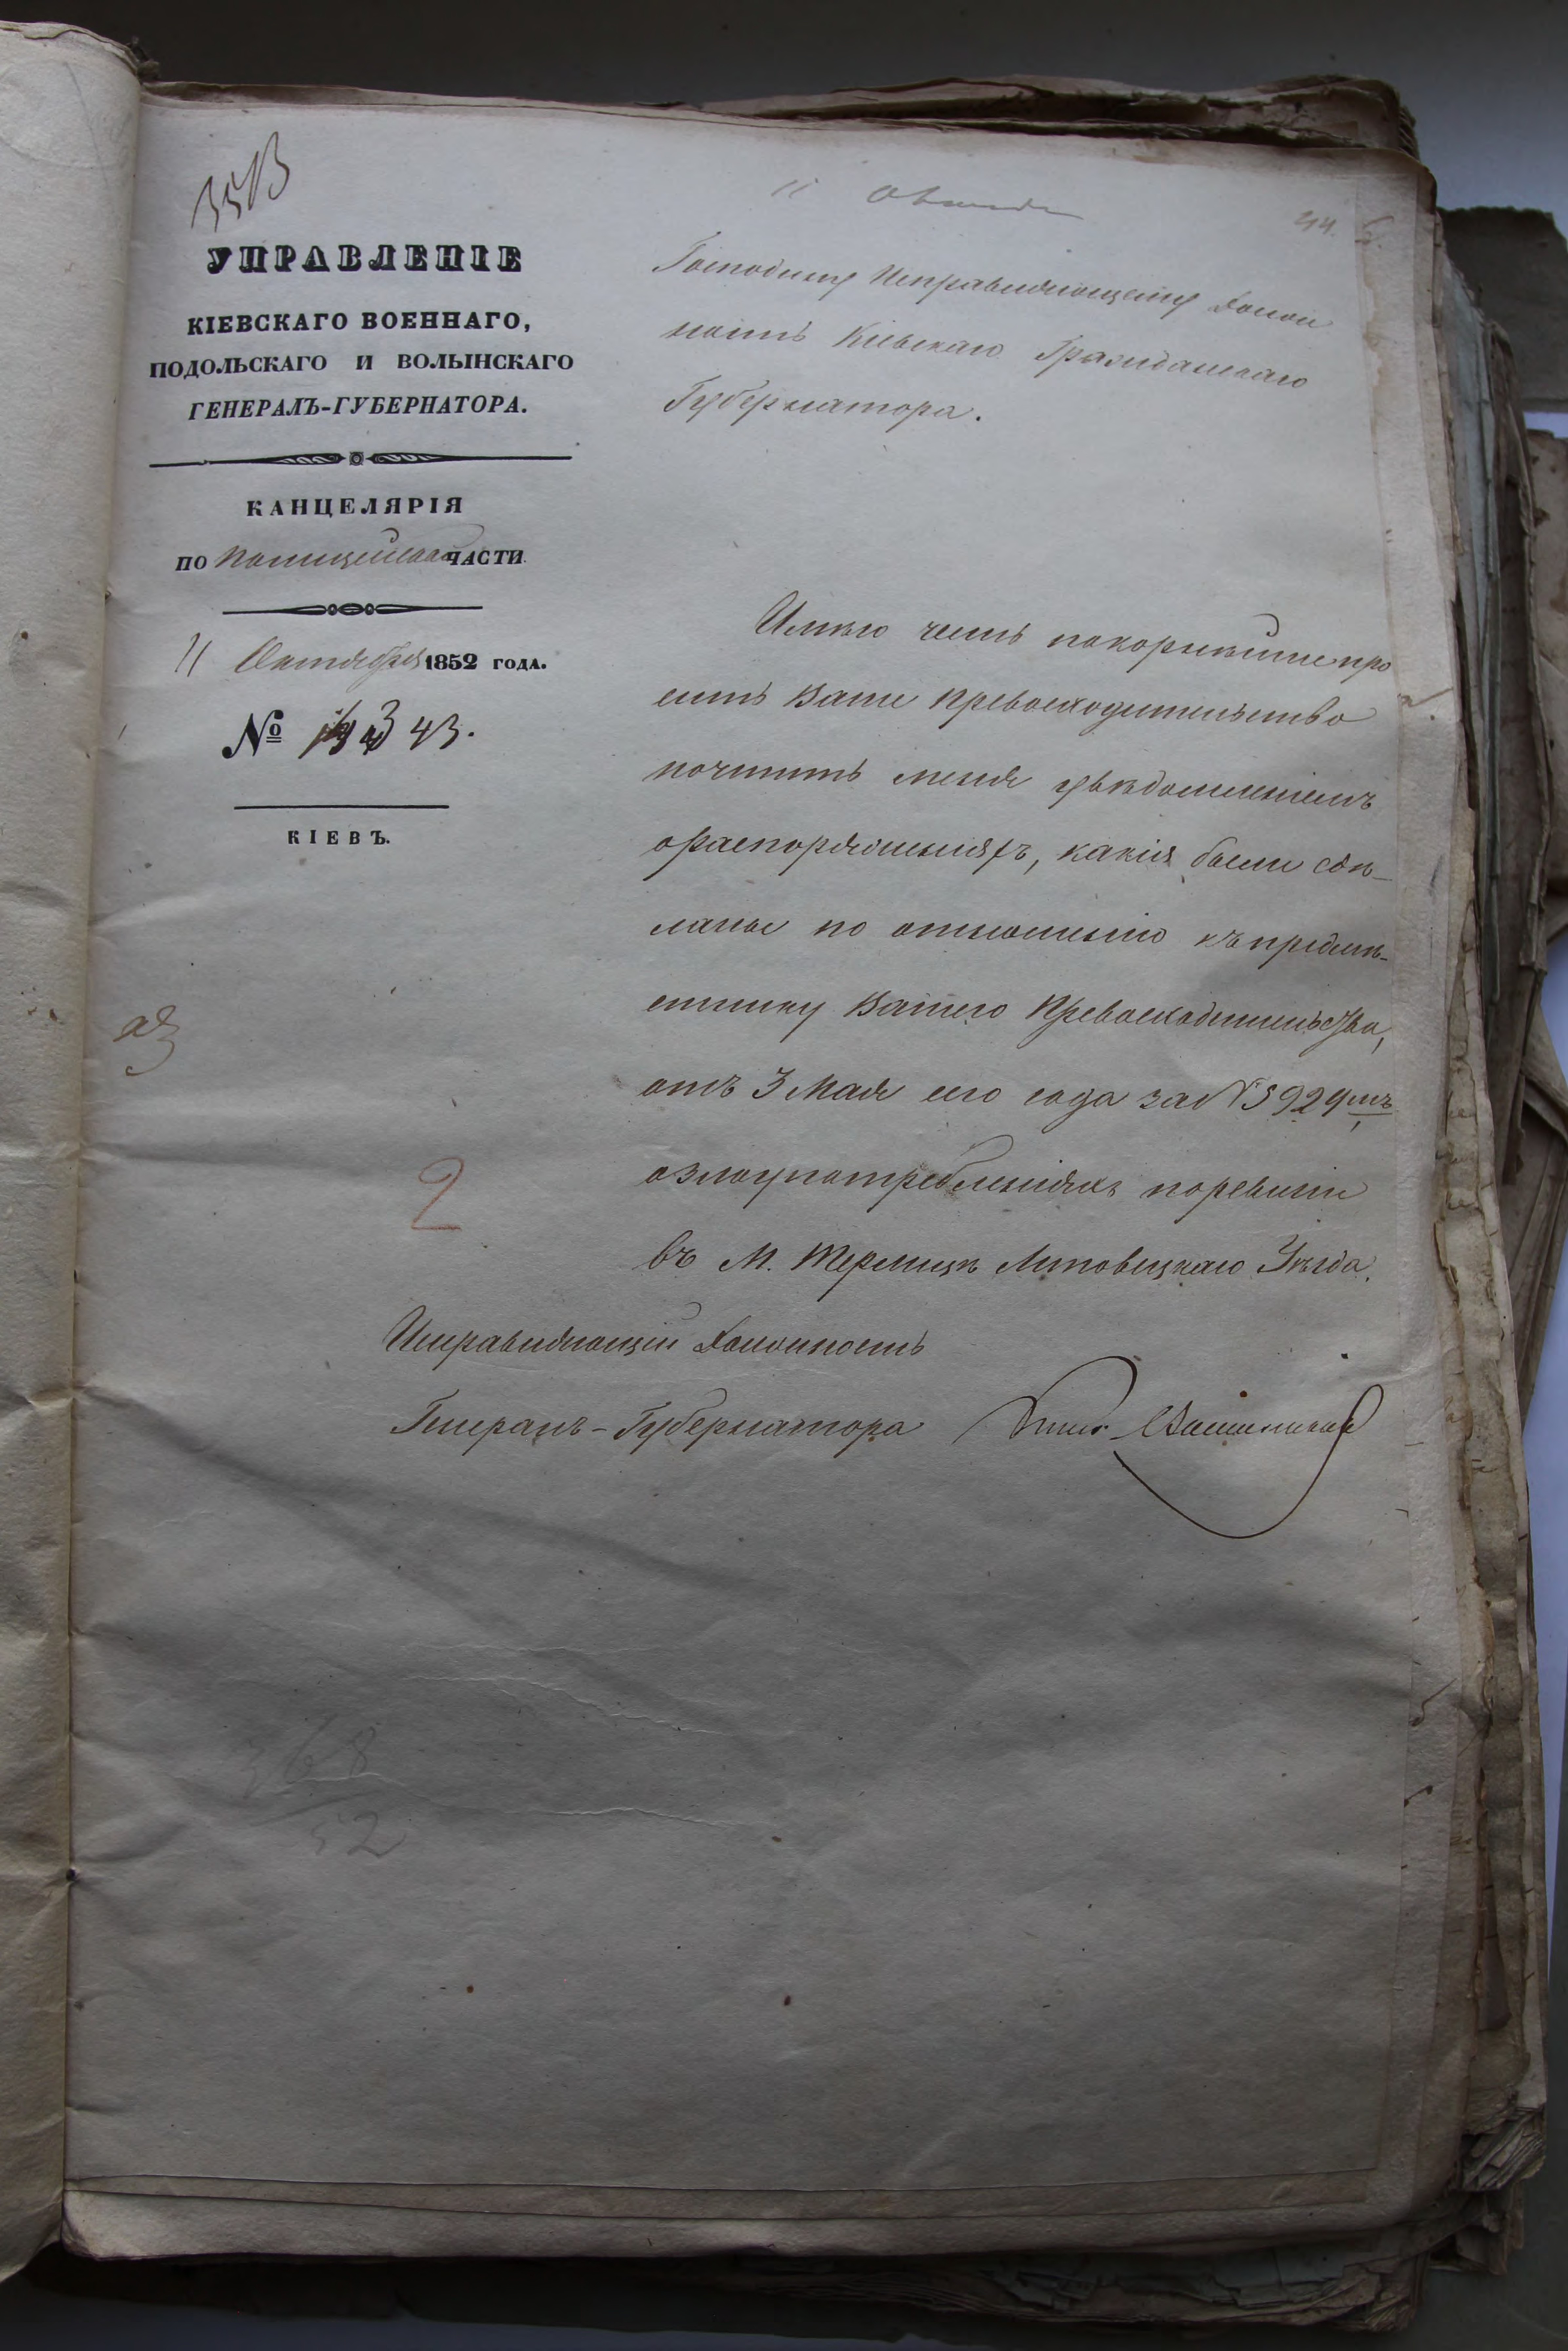 3513
УПРАВЛЕНІЕ
КІЕВСКАГО ВОЕННАГО,
ПОДОЛЬСКАГО И ВОЛЫНСКАГО
ГЕНЕРАЛЪ-ГУБЕРНАТОРА.
КАНЦЕЛЯРІЯ
ПО Полицейской ЧАСТИ
11 Октября 1852 ГОДА.
№ 43.
КІЕВЪ.
11
Господину Исправляющему Долж
ность Кіевскаго Гражданскаго
Губернатора.
Имѣю честь покорнѣйше про
сить Ваше Превосходительство
почтить меня увѣдомленіемъ
о распоряженіяхъ, какія были сдѣ-
ланы по отношенію къ предмѣ-
стнику Вашего Превосходительства,
отъ 3 Мая сего года за № 5929мъ
о злоупотребленіяхъ по ревизіи
въ М. Терлицѣ Липовецкаго Уѣзда.
2
Исправляющій Должность
Генералъ-Губернатора Князь Васильчиковъ
368
52